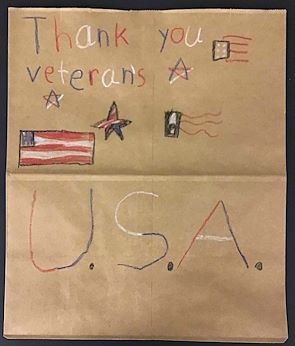 Thank you
veterans
U.S.A.